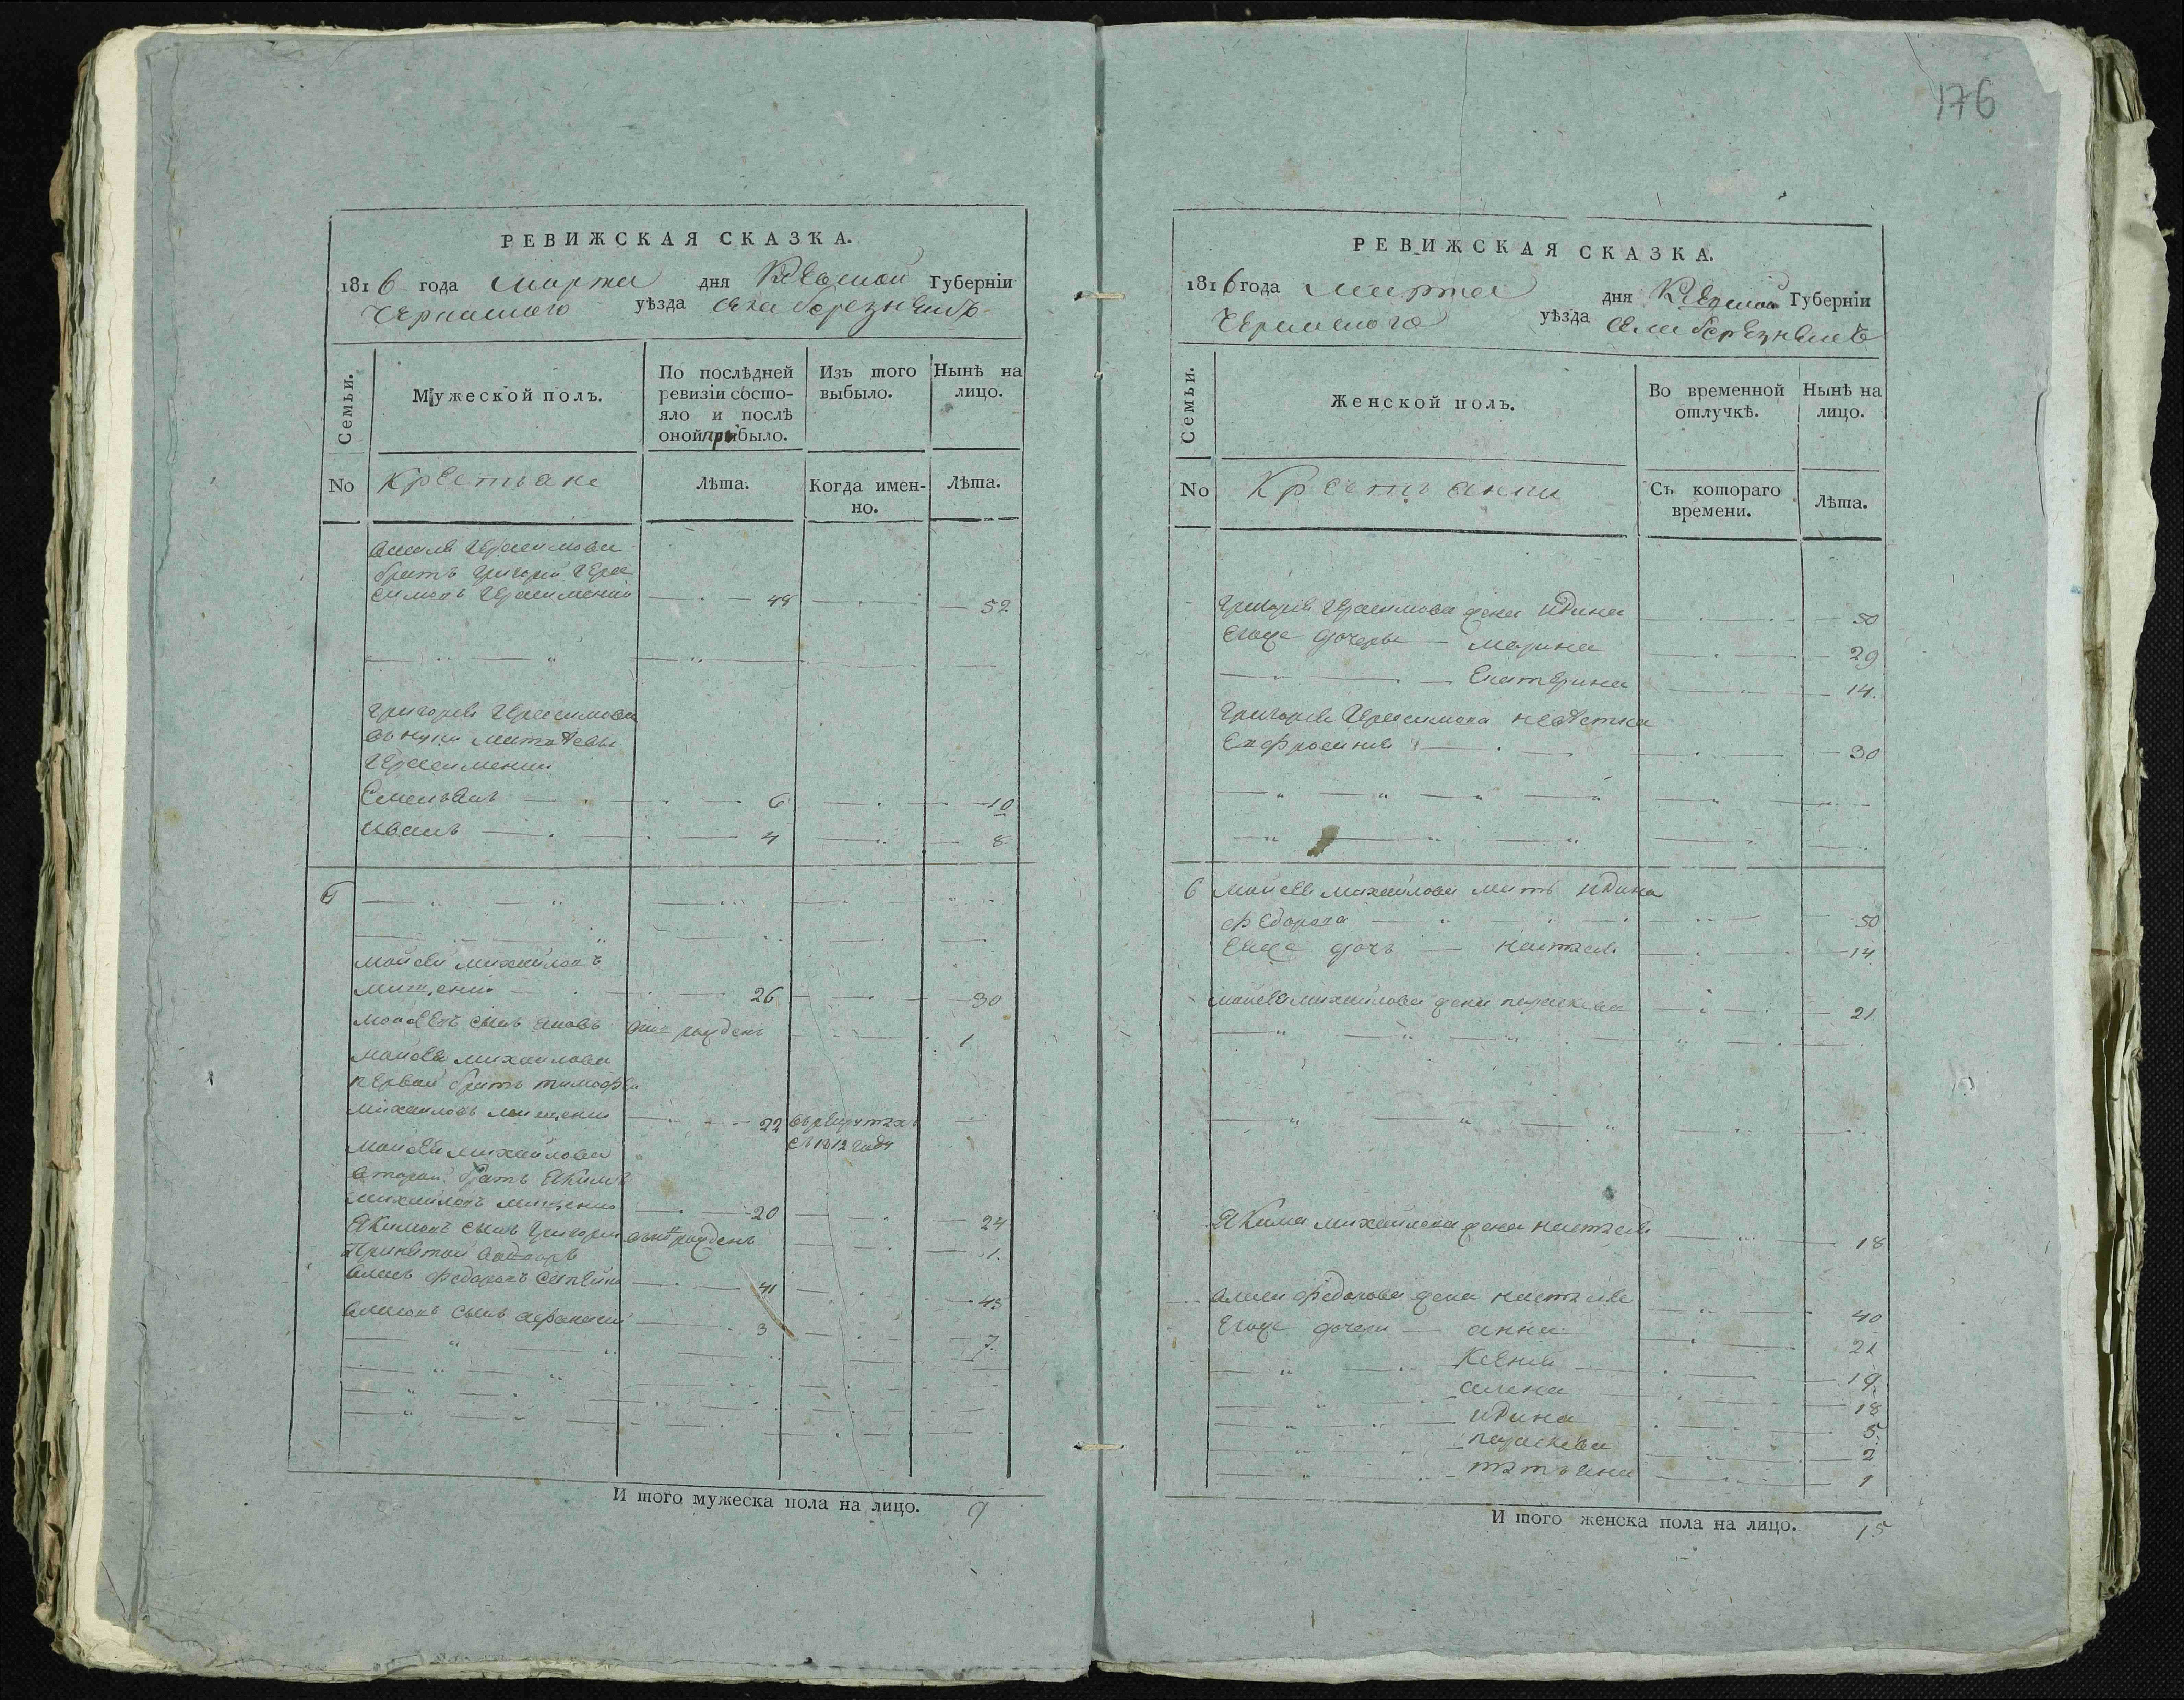 176
РЕВИЖСКАЯ СКАЗКА.
1816 года марта дня Киевской Губерніи
Черкаского уѣзда села березнякъ
Семьи.
Мужеской полъ.
По послѣдней ревизіи состояло и послѣ оной прибыло.
Изъ того выбыло.
Нынѣ на лицо.
No крестьяне
Лѣта.
Когда именно.
Лѣта.
василя Герасимова
братъ григорій Гера
симовъ Герасименко 48 52
григорія Герасимова
внуки матвѣевы
Герасименки
Емельянъ 6 10
иванъ 4 8
6
мойсей михайловъ
мищенко 26 30
мойсеевъ сынъ яковъ рожденъ 1
мойсея михайлова
первой братъ тимофей
михайловъ мищенко 22 въ рекрутахъ
съ 1812 году
мойсея михайлова
второй братъ Якимъ
михайловъ мищенко 20 24
Якимовъ сынъ григорій рожденъ 1
Принятой
федоровъ 41 45
сынъ афанасій 3 7
И того мужеска пола на лицо. 9
РЕВИЖСКАЯ СКАЗКА.
1816 года марта дня Киевской Губерніи
Черкаского уѣзда села березнякъ
Семьи.
Женской полъ.
Во временной отлучкѣ.
Нынѣ на лицо.
No Крестьянки
Съ котораго времени.
Лѣта.
григорія Герасимова жена ирина 50
Егоже дочери марина 29
Екатерина 14
григорія Герасимова невѣстка
Ефросинія 30
6 мойсея михайлова мать ирина
федорова 50
Еяже дочь настасія 14
мойсея михайлова жена параскева 21
Якима михайлова жена настасія 18
федорова жена настасія 40
Егоже дочери анна 21
Ксенія 19
алена 18
ирина 5
параскева 2
татьяна 1
И того женска пола на лицо. 15